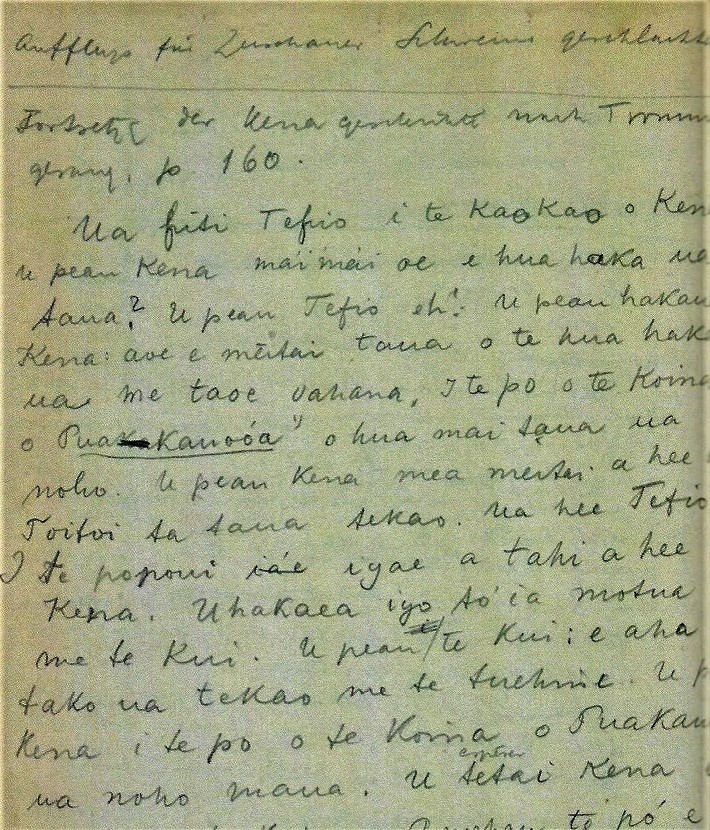 für Zuschauer Schweine geschlachte
Fortsetzg der Kena geschichte nach Tromm
gesang, p. 160.
Ua fiti Tefio i te KaoKao o Ken
u peau Kena maimai oe e hua haka ua
taua? U peau Tefio eh! U peau hakau
Kena: aoe e meitai taua o te hua hake
ua me taoe vahana, I te po o te Koina
o PuaKauooa" o hua mai taua ua
noho. U peau Kena mea meitai a hee
Toitoi ta taua tekao. Ua hee Tefio
I te popoui iae igae a tahi a hee
Kena. U hakaea igo to ia motua
me te Kui. U peau te Kui: e aha
tako ua tekao me te tuehine. U p
Kena i te po o te Koina o PuaKau
ua noho maua. U tetai Kena
te pó e